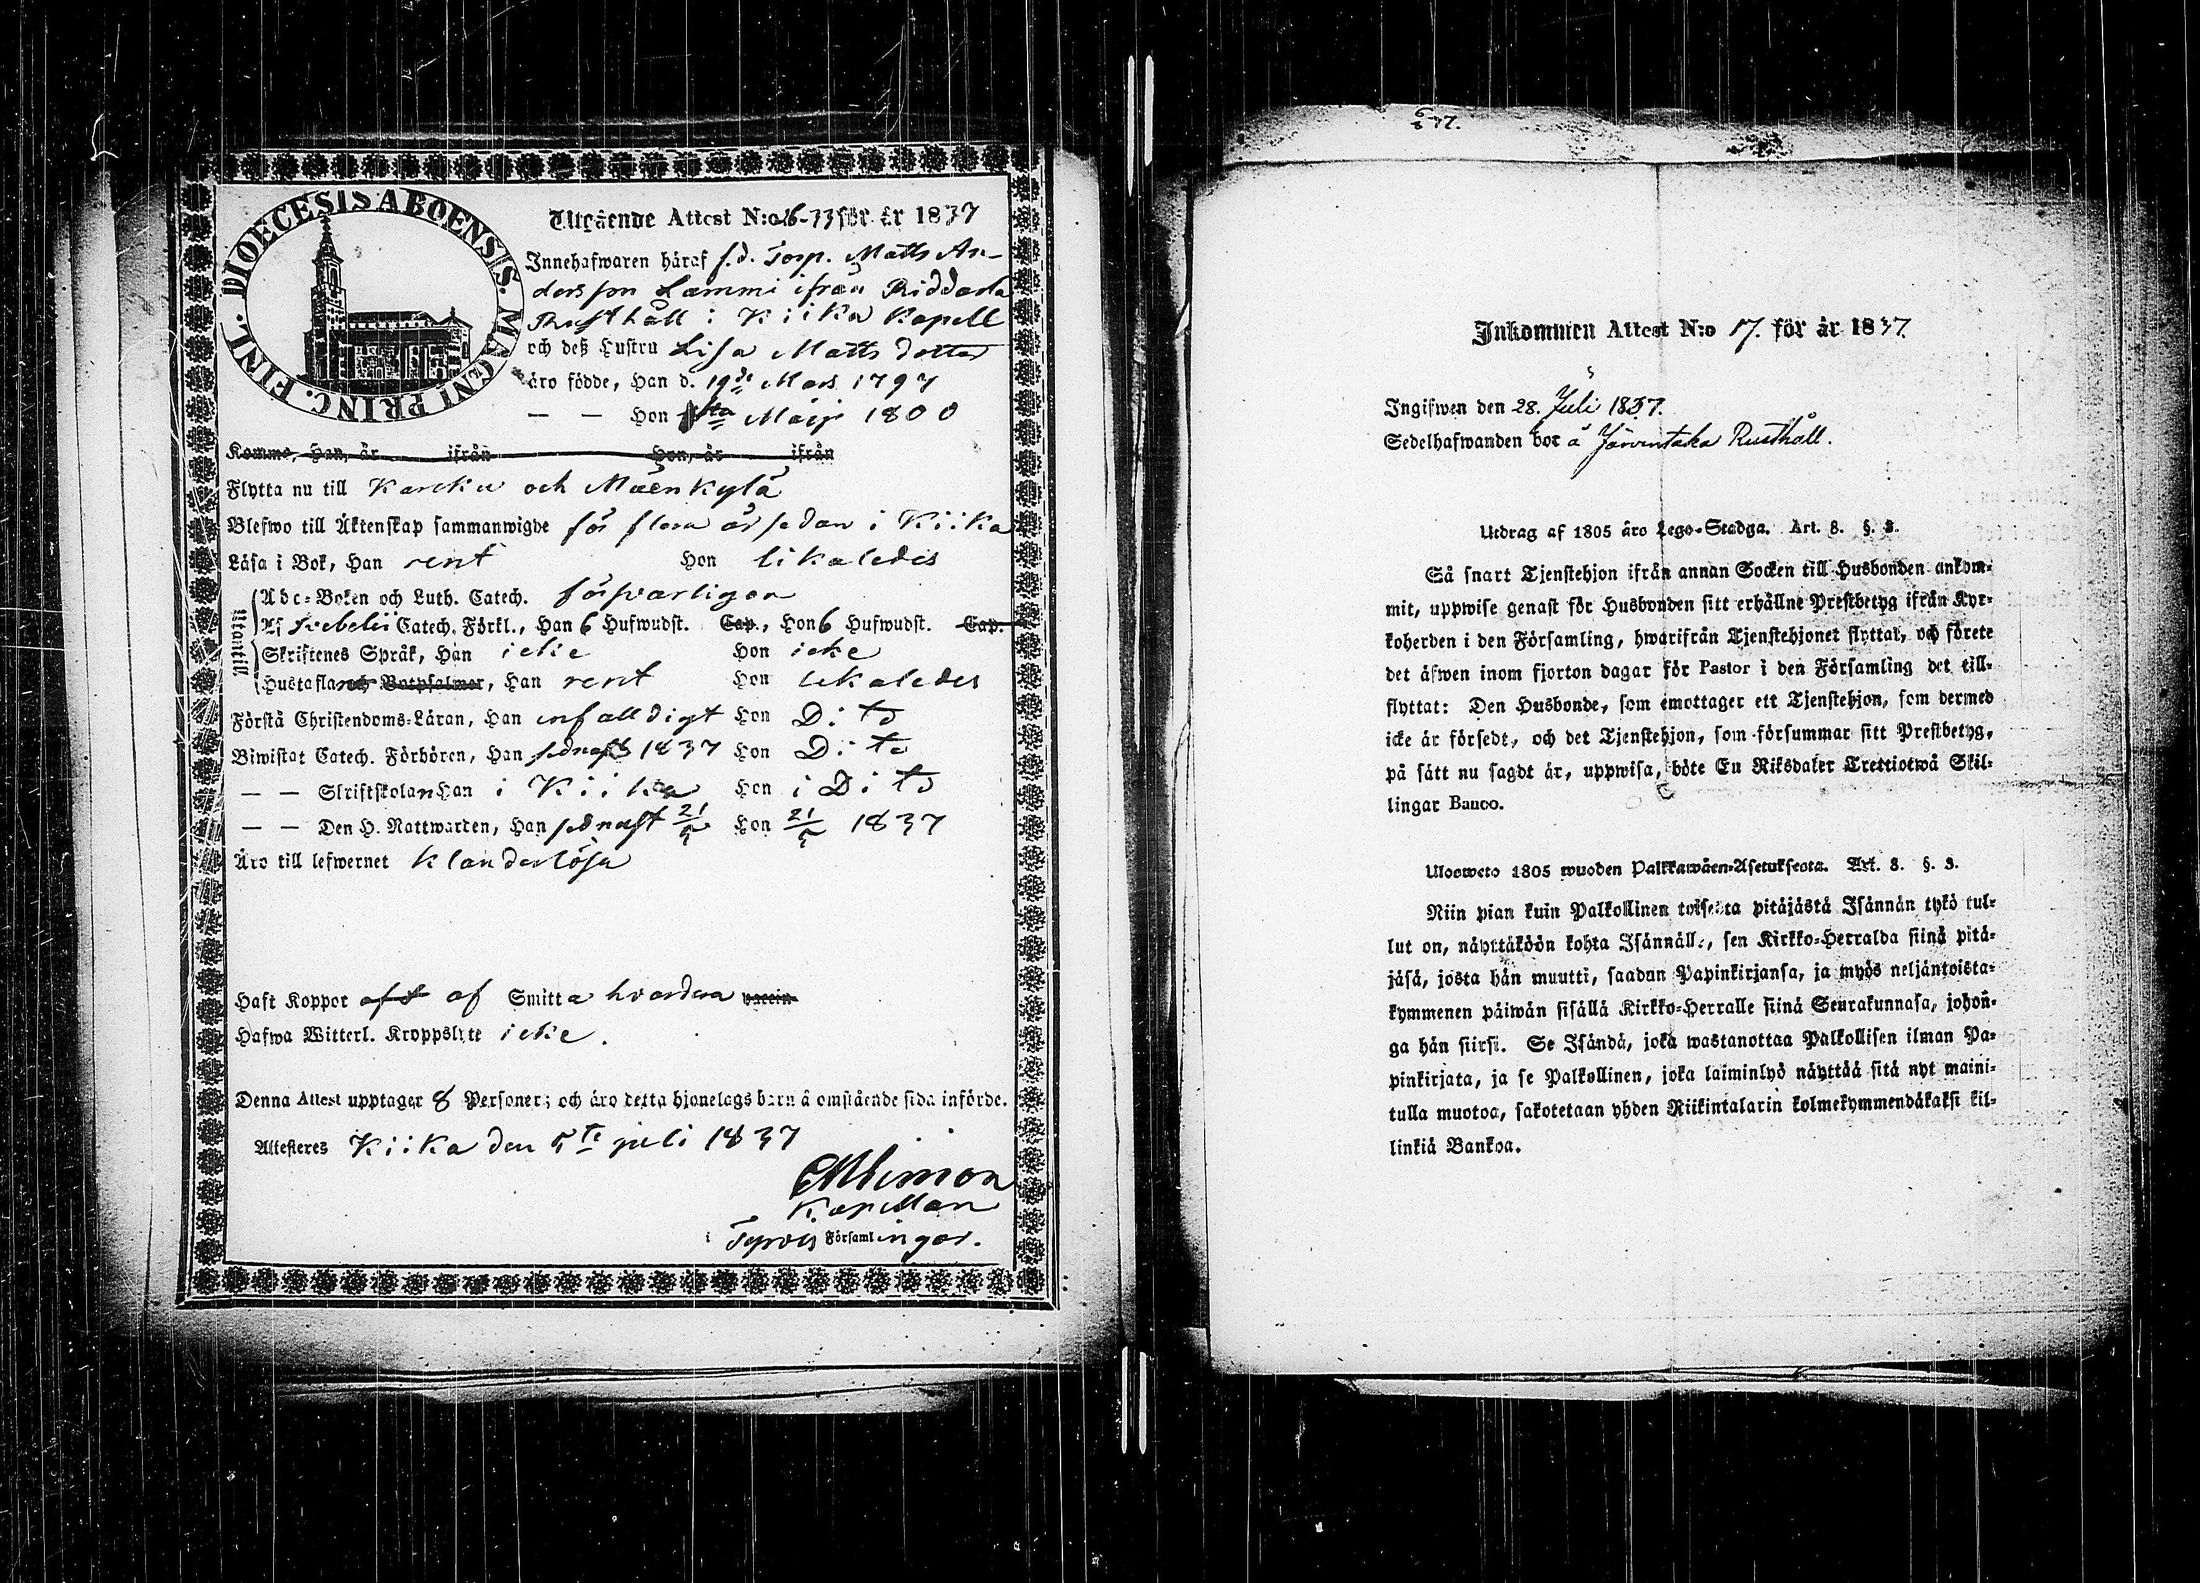 DIOECESIS ABOENSIS. MAGNI PRINC. FINL.
Utgående Attest N:o 26-33 för år 1837
Innehafwaren häraf f.d. Torp. Matts An-
dersson Lammi ifrån Riddala
Rusthåll i Kiika Kapell
och deß Hustru Lisa Matts dotter
äro födde, Han d. 19de Mars 1797
— — Hon 1sta Maji 1800
Komma, Han, är ifrån Hon, är ifrån
Flytta nu till Karcku och Mäenkylä
Blefwo till Äktenskap sammanwigde för flera år sedan i Kiika
Läsa i Bok, Han rent Hon likaledes
Utantill
Abc-Boken och Luth. Catech. försvarligen
Af Svebelii Catech. Förkl., Han 6 Hufwudst. Cap., Hon 6 Hufwudst. Cap.
Skriftenes Språk, Han icke Hon icke
Hustafla och Botpsalmer, Han rent Hon likaledes
Förstå Christendoms-Läran, Han enfalldigt Hon Dito
Biwistat Catech. Förhören, Han sednast 1837 Hon Dito
— — Skriftskolan Han i Kiika Hon i Dito
— — Den H. Nattwarden, Han sednast 21/5 Hon 21/5 1837
Äro till lefwernet Klanderlösa
Haft Koppor af Smitta hvardera vaccin
Hafwa Witterl. Kroppslyte icke.
Denna Attest upptager 8 Personer; och äro detta hjonelags barn å omstående sida införde.
Attesteres Kiika den 5te juli 1837
Kapellan
i Tyrvis Församlingar.
6/8 37.
Inkommen Attest N:o 17. för år 1837.
Ingifwen den 28. Juli 1837.
Sedelhafwanden bor å Järventaka Rusthåll.
Utdrag af 1805 års Lego-Stadga. Art. 8. §. 3.
Så snart Tjenstehjon ifrån annan Socken till Husbonden ankom-
mit, uppwise genast för Husbonden sitt erhållne Prestbetyg ifrån Kyr-
koherden i den Församling, hwarifrån Tjenstehjonet flyttat, och förete
det äfwen inom fjorton dagar för Pastor i den Församling det till-
flyttat: Den Husbonde, som emottager ett Tjenstehjon, som dermed
icke är försedt, och det Tjenstehjon, som försummar sitt Prestbetyg,
på sätt nu sagdt är, uppwisa, böte En Riksdaler Trettiotwå Skil-
lingar Banco.
Ulosweto 1805 wuoden Palkkawäen-Asetuksesta. Art. 8. §. 3.
Niin pian kuin Palkollinen toisesta pitäjästä Isännän tykö tul-
lut on, näyttäköön kohta Isännälle, sen Kirkko-Herralda siinä pitä-
jäsä, josta hän muutti, saadun Papinkirjansa, ja myös neljäntoista-
kymmenen päiwän sisällä Kirkko-Herralle siinä Seurakunnasa, johoñ-
ga hän siirsi. Se Isändä, joka wastanottaa Palkollisen ilman Pa-
pinkirjata, ja se Palkollinen, joka laiminlyö näyttää sitä nyt maini-
tulla muotoa, sakotetaan yhden Riikintalarin kolmekymmendäkaksi kil-
linkiä Bankoa.